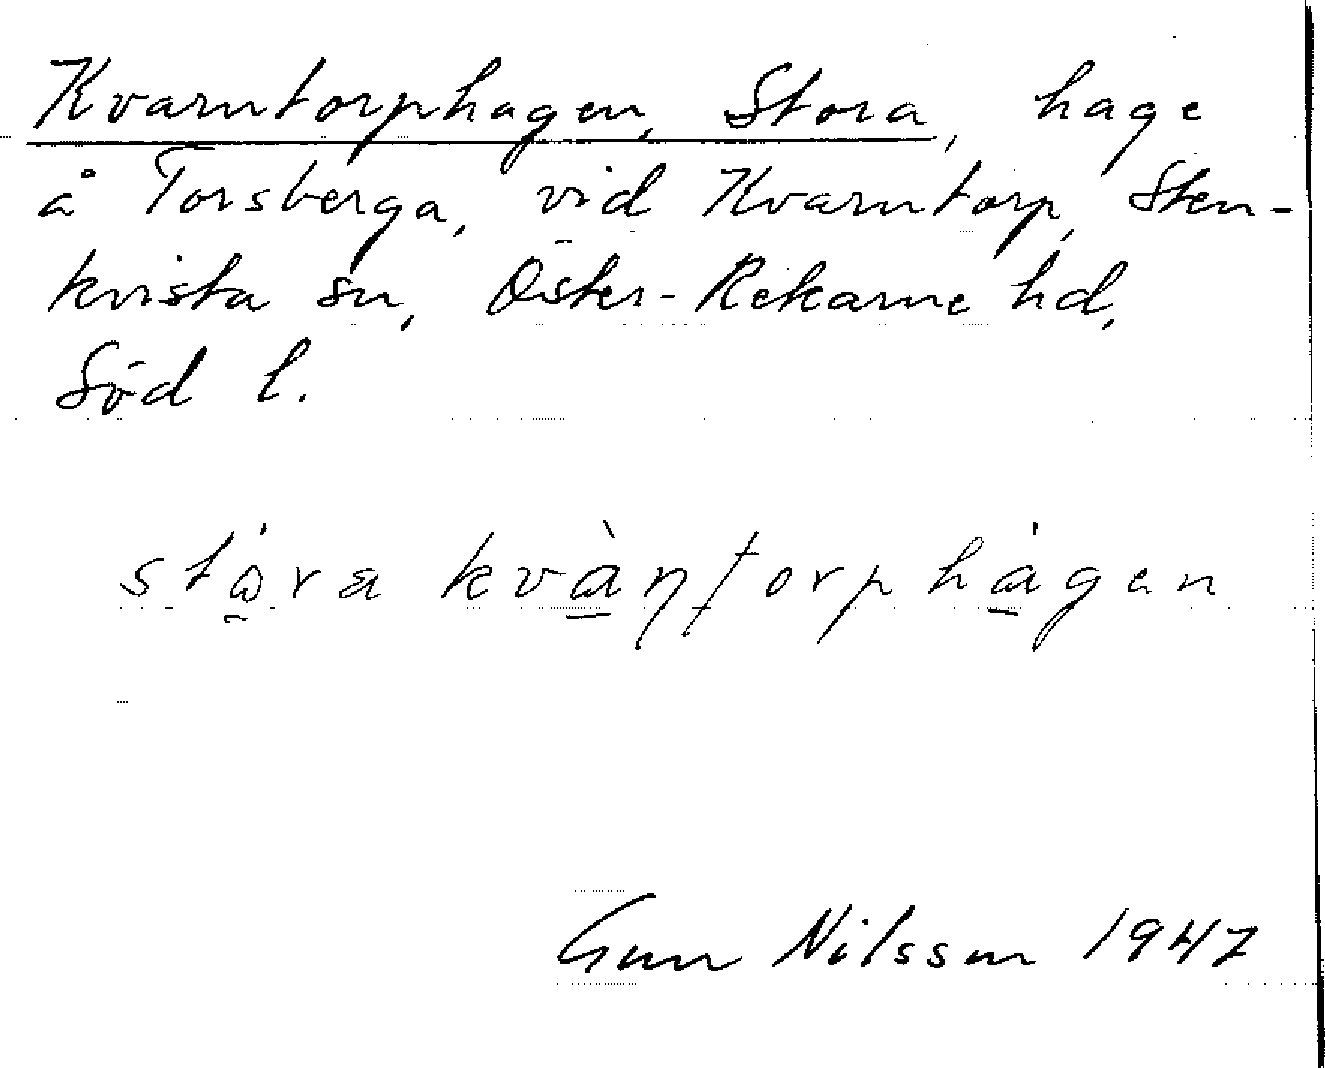 Kvarntorphagen, Stora, hage
å Torsberga, vid Kvarntorp, Sten-
kvista sn, Öster-Rekarne hd,
Söd l.
stώ̠ra kvὰ̠ɳʈorphά̠gen
Gun Nilsson 1947